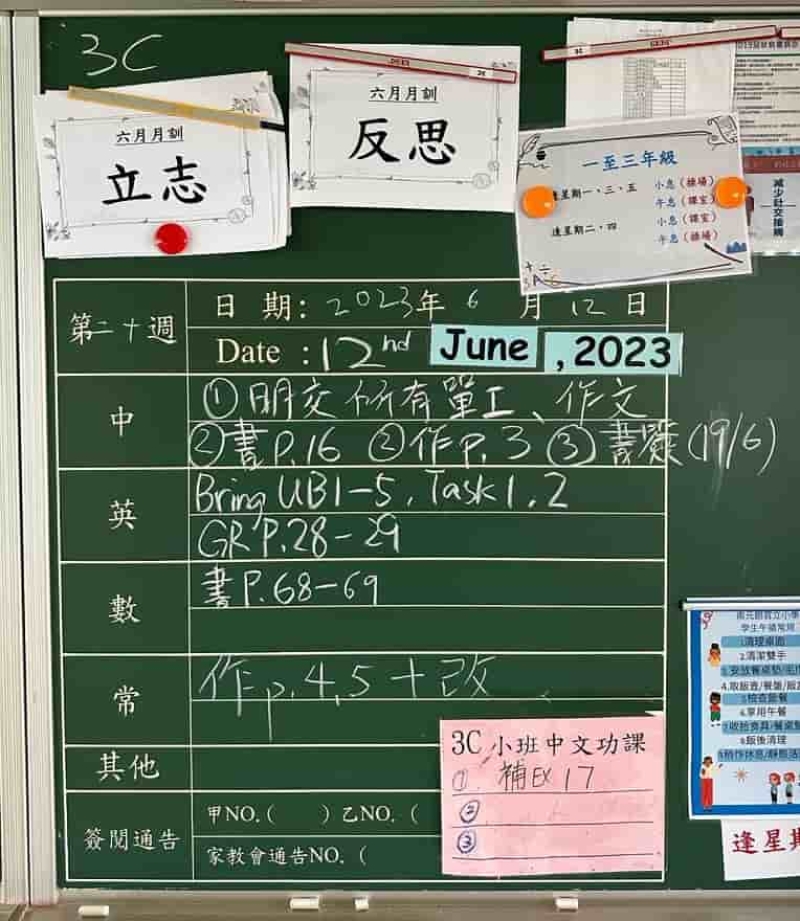 3C
六月月訓
立志
六月月訓
反思
一至三年級
逢星期一、三、五
小息(操場)
午息(課室)
逢星期二、四
小息(課室)
午息(操場)
減少社交接觸
第二十週
日 期: 2023年 6 月 12 日
Date : 12nd June , 2023
中
①明交所有單工、作文
②書P.16 ②作p.3 ③書
(19/6)
英
Bring UB1-5, Task1,2
GR P.28-29
數
書P.68-69
常
作p.4,5+改
其他
簽閱通告
甲NO.( ) 乙NO. (
家教會通告NO. (
3C 小班中文功課
① 補EX 17
②
③
學生午膳常規
1.清理桌面
2.清潔雙手
4.取飯壺/餐盤/飯
5.檢查飯餐
6.享用午餐
7.收拾食具/餐桌
8.飯後清理
逢星期